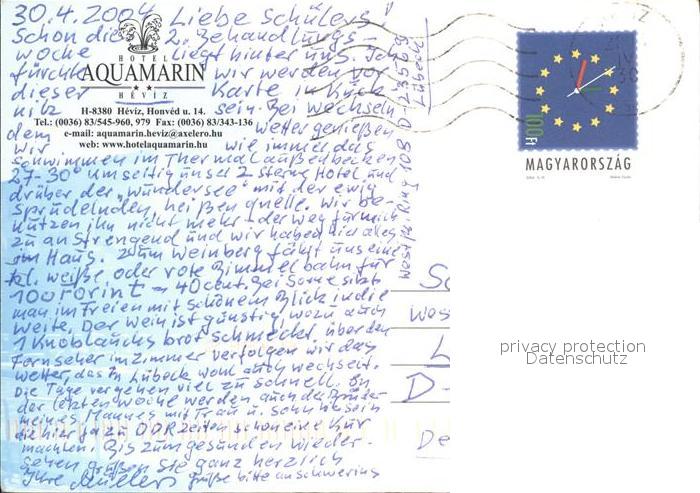 30.4.2004 Liebe Schülers!
Schon die 2. Behandlungs-
woche liegt hinter uns. Ich
fürchte wir werden vor
dieser Karte in Rück
nitz sein. Bei wechseln
dem Wetter genießen
wir wie immer das
schwimmen im Thermalaußenbecken
27-30° umseitig unser 2 sterne Hotel und
drüber der "wundersee" mit der ewig
sprudelnden, heißen quelle. Wir be-
nutzen ihn nicht mehr - der Weg für mich
zu anstrengend und wir haben hier alles
im Haus. Zum Weinberg fährt uns eine
kl. weiße oder rote Bimmelbahn für
100 Forint = 40 cent. Bei Sonne sitzt
man im Freien mit schönem Blick in die
Weite. Der Wein ist günstig, wozu auch
1 Knoblauchsbrot schmeckt. Über den
Fernseher im Zimmer verfolgen wir das
Wetter, das in Lübeck wohl auch wechselt.
Die Tage vergehen viel zu schnell. In
der letzten Woche werden auch der Bruder
meines Mannes mit Frau u. Sohn hier sein
die hier zu DDR Zeiten schon eine Kur
machten. Bis zum gesunden Wieder-
sehen grüßen Sie ganz herzlich
Ihre Müllers Grüße bitte an Schwerins
HOTEL
AQUAMARIN
HÉVÍZ
H-8380 Hévíz, Honvéd u. 14.
Tel.: (0036) 83/545-960, 979 Fax: (0036) 83/343-136
e-mail: aquamarin.heviz@axelero.hu
web: www.hotelaquamarin.hu
Ring 10B D-23569
Lübeck
100Ft
MAGYARORSZÁG
privacy protection
Datenschutz
Sc
Wes
L
D-
De